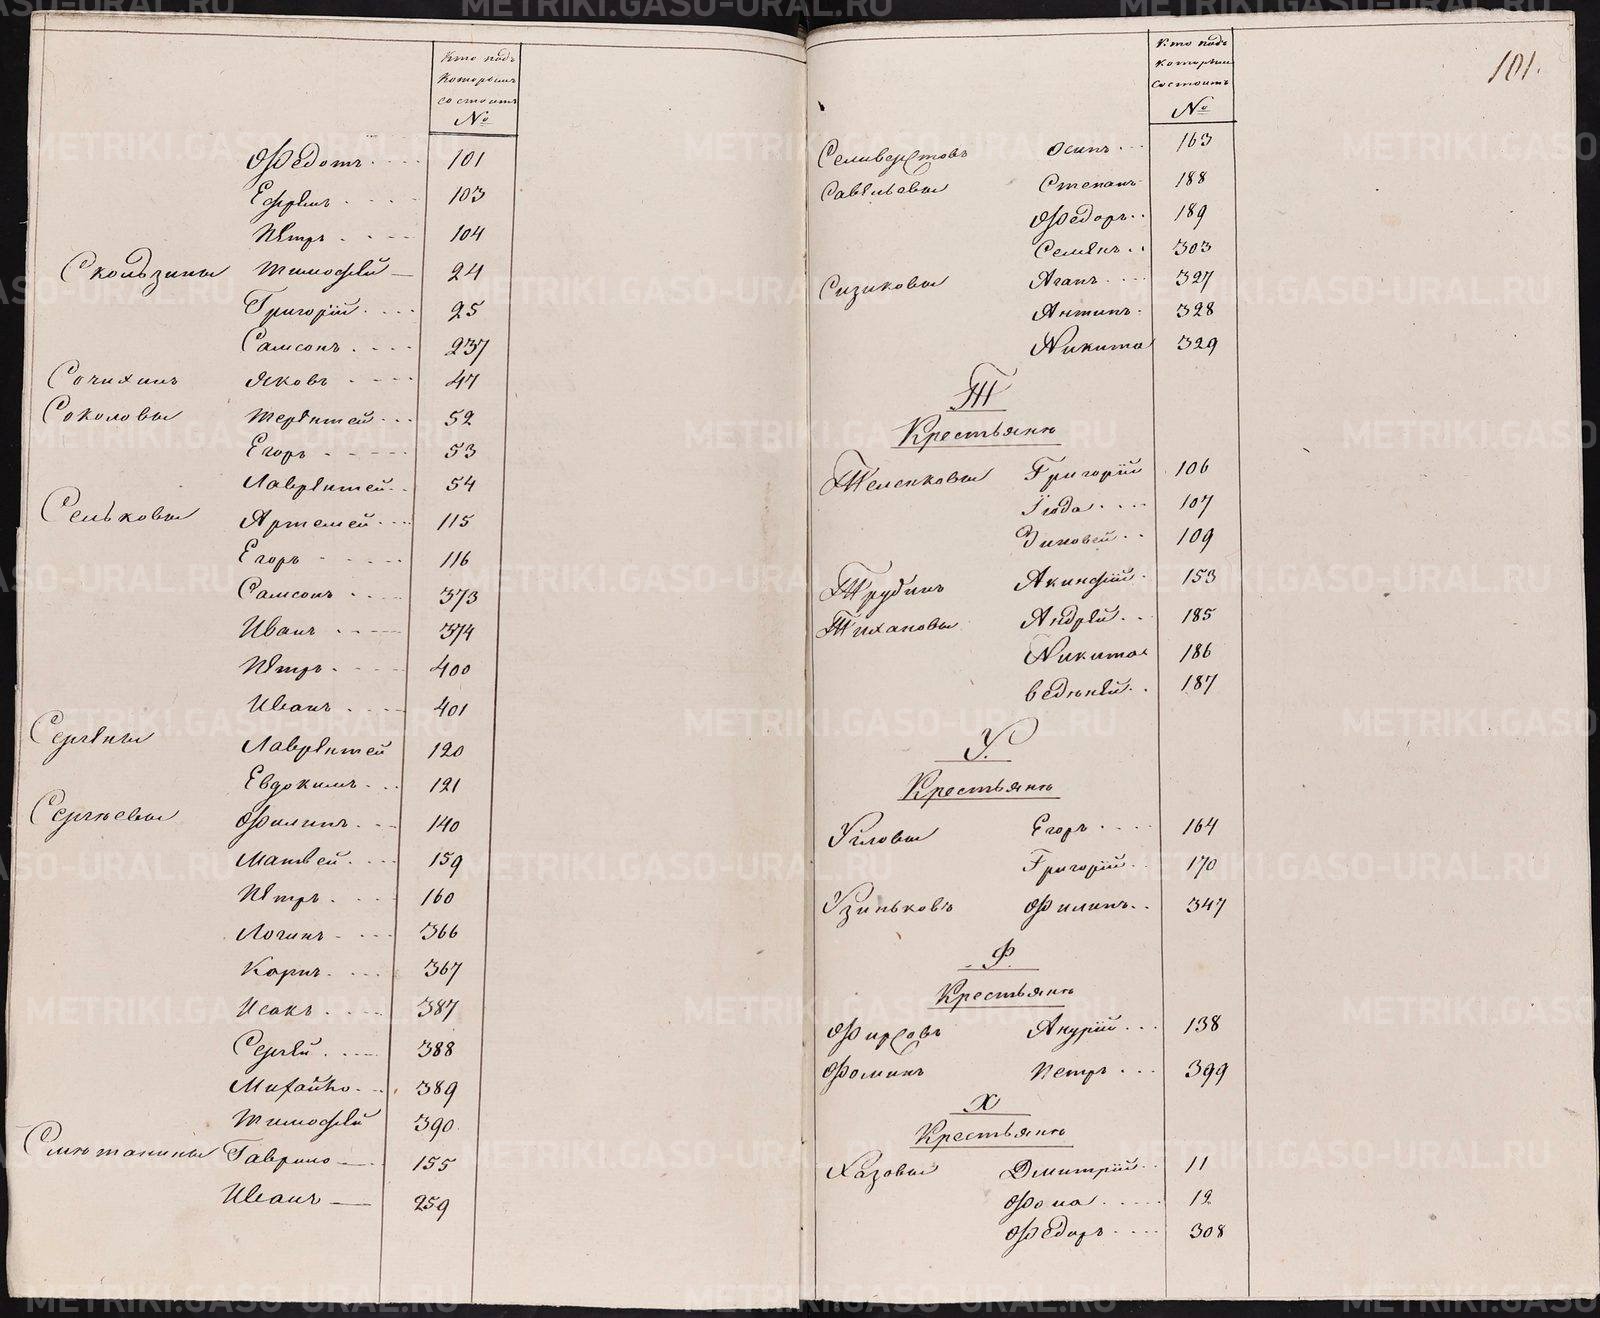 Кто подъ
которымъ
состоитъ
№
Ѳедотъ 101
Ефрѣмъ 103
Пѣтръ 104
Скользины Тимофѣй 24
Григорій 25
Самсонъ 237
Сочихинъ Яковъ 47
Соколовы Терѣнтей 52
Егоръ 53
Лаврѣнтей 54
Сельковы Артемей 115
Егоръ 116
Самсонъ 373
Иванъ 374
Пѣтръ 400
Иванъ 401
Сергѣины Лаврѣнтей 120
Евдокимъ 121
Сергѣевы Филипъ 140
Матвей 159
Пѣтръ 160
Логинъ 366
Карпъ 367
Исакъ 387
Сергѣй 388
Михайло 389
Тимофѣй 390
Смѣтанины Гаврило 155
Иванъ 259
101.
Кто подъ
которымъ
состоитъ
№
Селиверстовъ Осипъ 163
Савѣльевы Степанъ 188
Федоръ 189
Семѣнъ 303
Сизиковы Агапъ 327
Антипъ 328
Никита 329
Т
Крестьянѣ
Теленковы Григорій 106
Іюда 107
Зиновей 109
Трубинъ Акинфій 153
Тихановы Андрѣй 185
Никита 186
Ведѣнѣй 187
У.
Крестьянѣ
Угловы Егоръ 164
Григорій 170
Узиньковъ Филипъ 347
Ф.
Крестьянѣ
Фирсовъ Анурій 138
Фоминъ Петръ 399
Х
Крестьянѣ
Хазовы Дмитрій 11
Фома 12
Фѣдоръ 308
METRIKI.GASO-URAL.RU